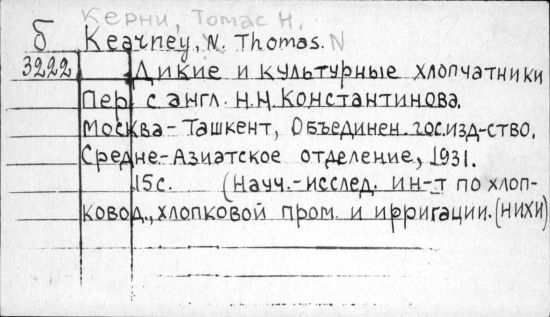 Керни, Томас Н.
Б Kearney, N. Thomas. N
3222 Дикие и культурные хлопчатники
Пер с англ. Н.Н. Константинова.
Москва-Ташкент, Объединен. гос.изд-ство.
Средне-Азиатское отделение, 1931.
15с. (Науч.-исслед. ин-т по хлоп-
ковод., хлопковой пром. и ирригации. (НИХИ)